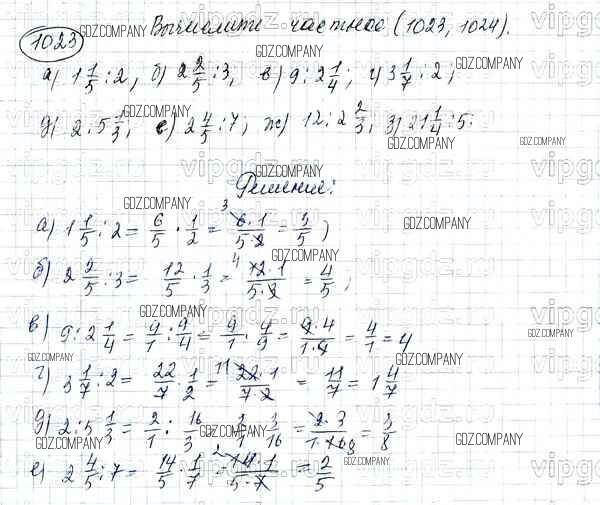 1023 Вычислите частное (1023, 1024).
а) 1 1/5 : 2, б) 2 2/5 : 3, в) 9 : 2 1/4; г) 3 1/7 : 2;
д) 2 : 5 1/3; е) 2 4/5 : 7; ж) 12 : 2 2/3; з) 21 1/4 : 5.
Решение:
а) 1 1/5 : 2 = 6/5 · 1/2 = 6·1/5·2 = 3/5;
б) 2 2/5 : 3 = 12/5 · 1/3 = 12·1/5·3 = 4/5;
в) 9 : 2 1/4 = 9/1 : 9/4 = 9/1 · 4/9 = 9·4/1·9 = 4/1 = 4
г) 3 1/7 : 2 = 22/7 · 1/2 = 22·1/7·2 = 11/7 = 1 4/7
д) 2 : 5 1/3 = 2/1 : 16/3 = 2/1 · 3/16 = 2·3/1·16 8 = 3/8
е) 2 4/5 : 7 = 14/5 · 1/7 = 14·1/5·7 = 2/5
GDZ.COMPANY
vipgdz.ru